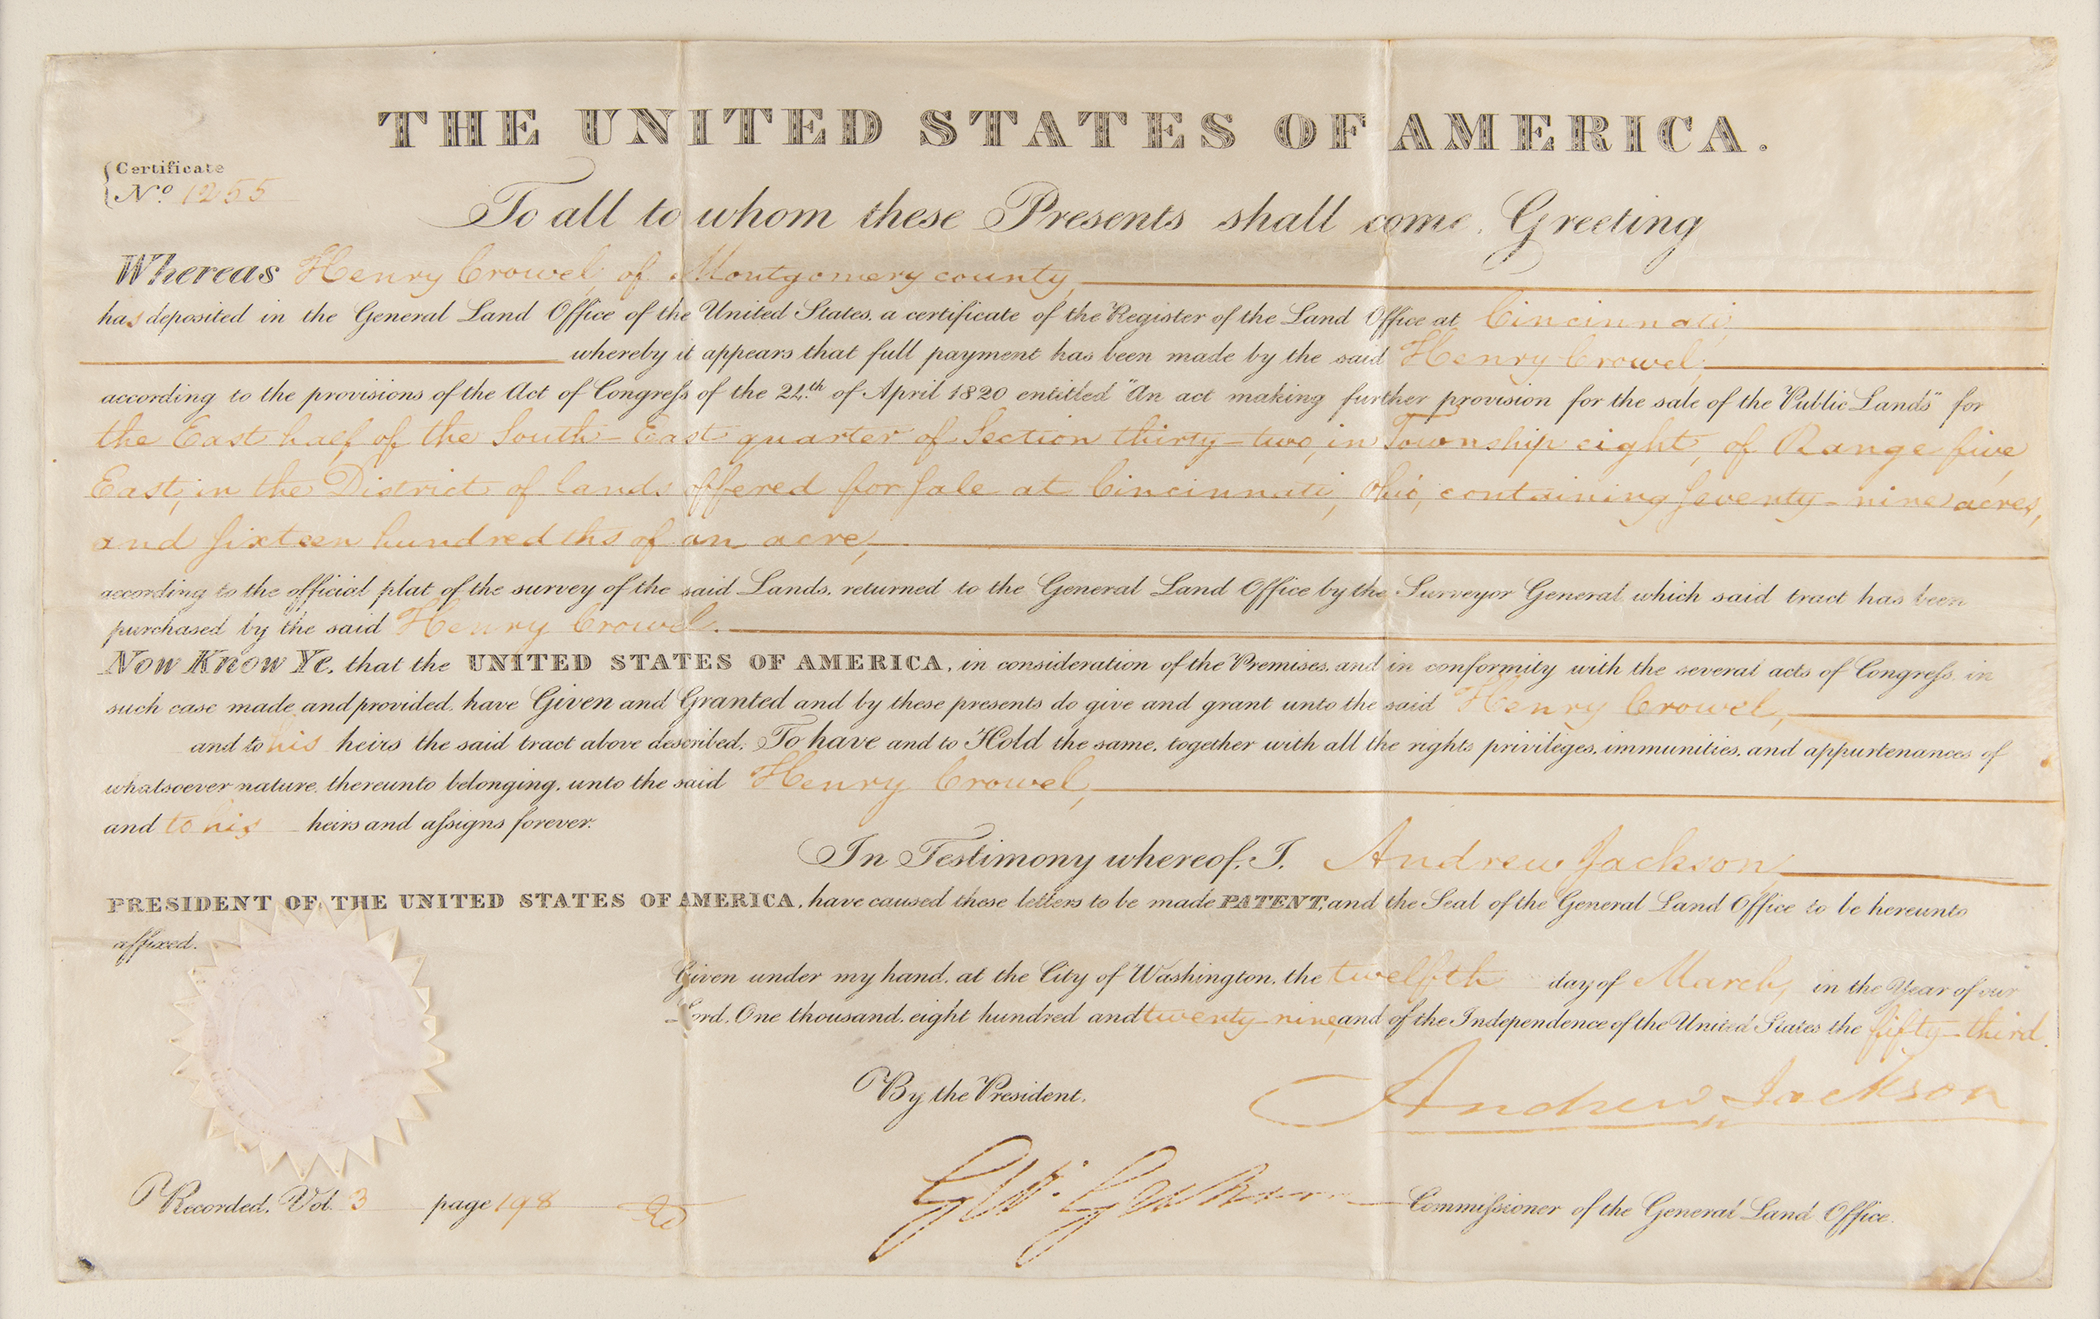 THE UNITED STATES OF AMERICA.
Certificate
No. 1255
To all to whom these Presents shall come, Greeting
Whereas Henry Crowel, of Montgomery county,
has deposited in the General Land Office of the United States, a certificate of the Register of the Land Office at Cincinnati,
whereby it appears that full payment has been made by the said Henry Crowel,
according to the provisions of the Act of Congress of the 24th of April 1820 entitled "An act making further provision for the sale of the Public Lands" for
the East half of the South-East quarter of Section thirty-two, in Township eight, of Range five,
East, in the District of lands offered for Sale at Cincinnati, Ohio, containing Seventy-nine acres,
and Sixteen hundredths of an acre,
according to the official plat of the survey of the said Lands, returned to the General Land Office by the Surveyor General, which said tract has been
purchased by the said Henry Crowel.
Now Know Ye, that the UNITED STATES OF AMERICA, in consideration of the Premises, and in conformity with the several acts of Congress, in
such case made and provided, have Given and Granted and by these presents do give and grant unto the said Henry Crowel,
and to his heirs the said tract above described; To have and to Hold the same, together with all the rights privileges, immunities, and appurtenances of
whatsoever nature, thereunto belonging, unto the said Henry Crowel,
and to his heirs and assigns forever.
In Testimony whereof, I, Andrew Jackson
PRESIDENT OF THE UNITED STATES OF AMERICA, have caused these letters to be made PATENT, and the Seal of the General Land Office to be hereunto
affixed.
Given under my hand, at the City of Washington, the twelfth day of March, in the Year of our
Lord, One thousand, eight hundred and twenty nine, and of the Independence of the United States the fifty-third.
By the President,
Andrew Jackson
Commissioner of the General Land Office.
Recorded, Vol. 3 page 198